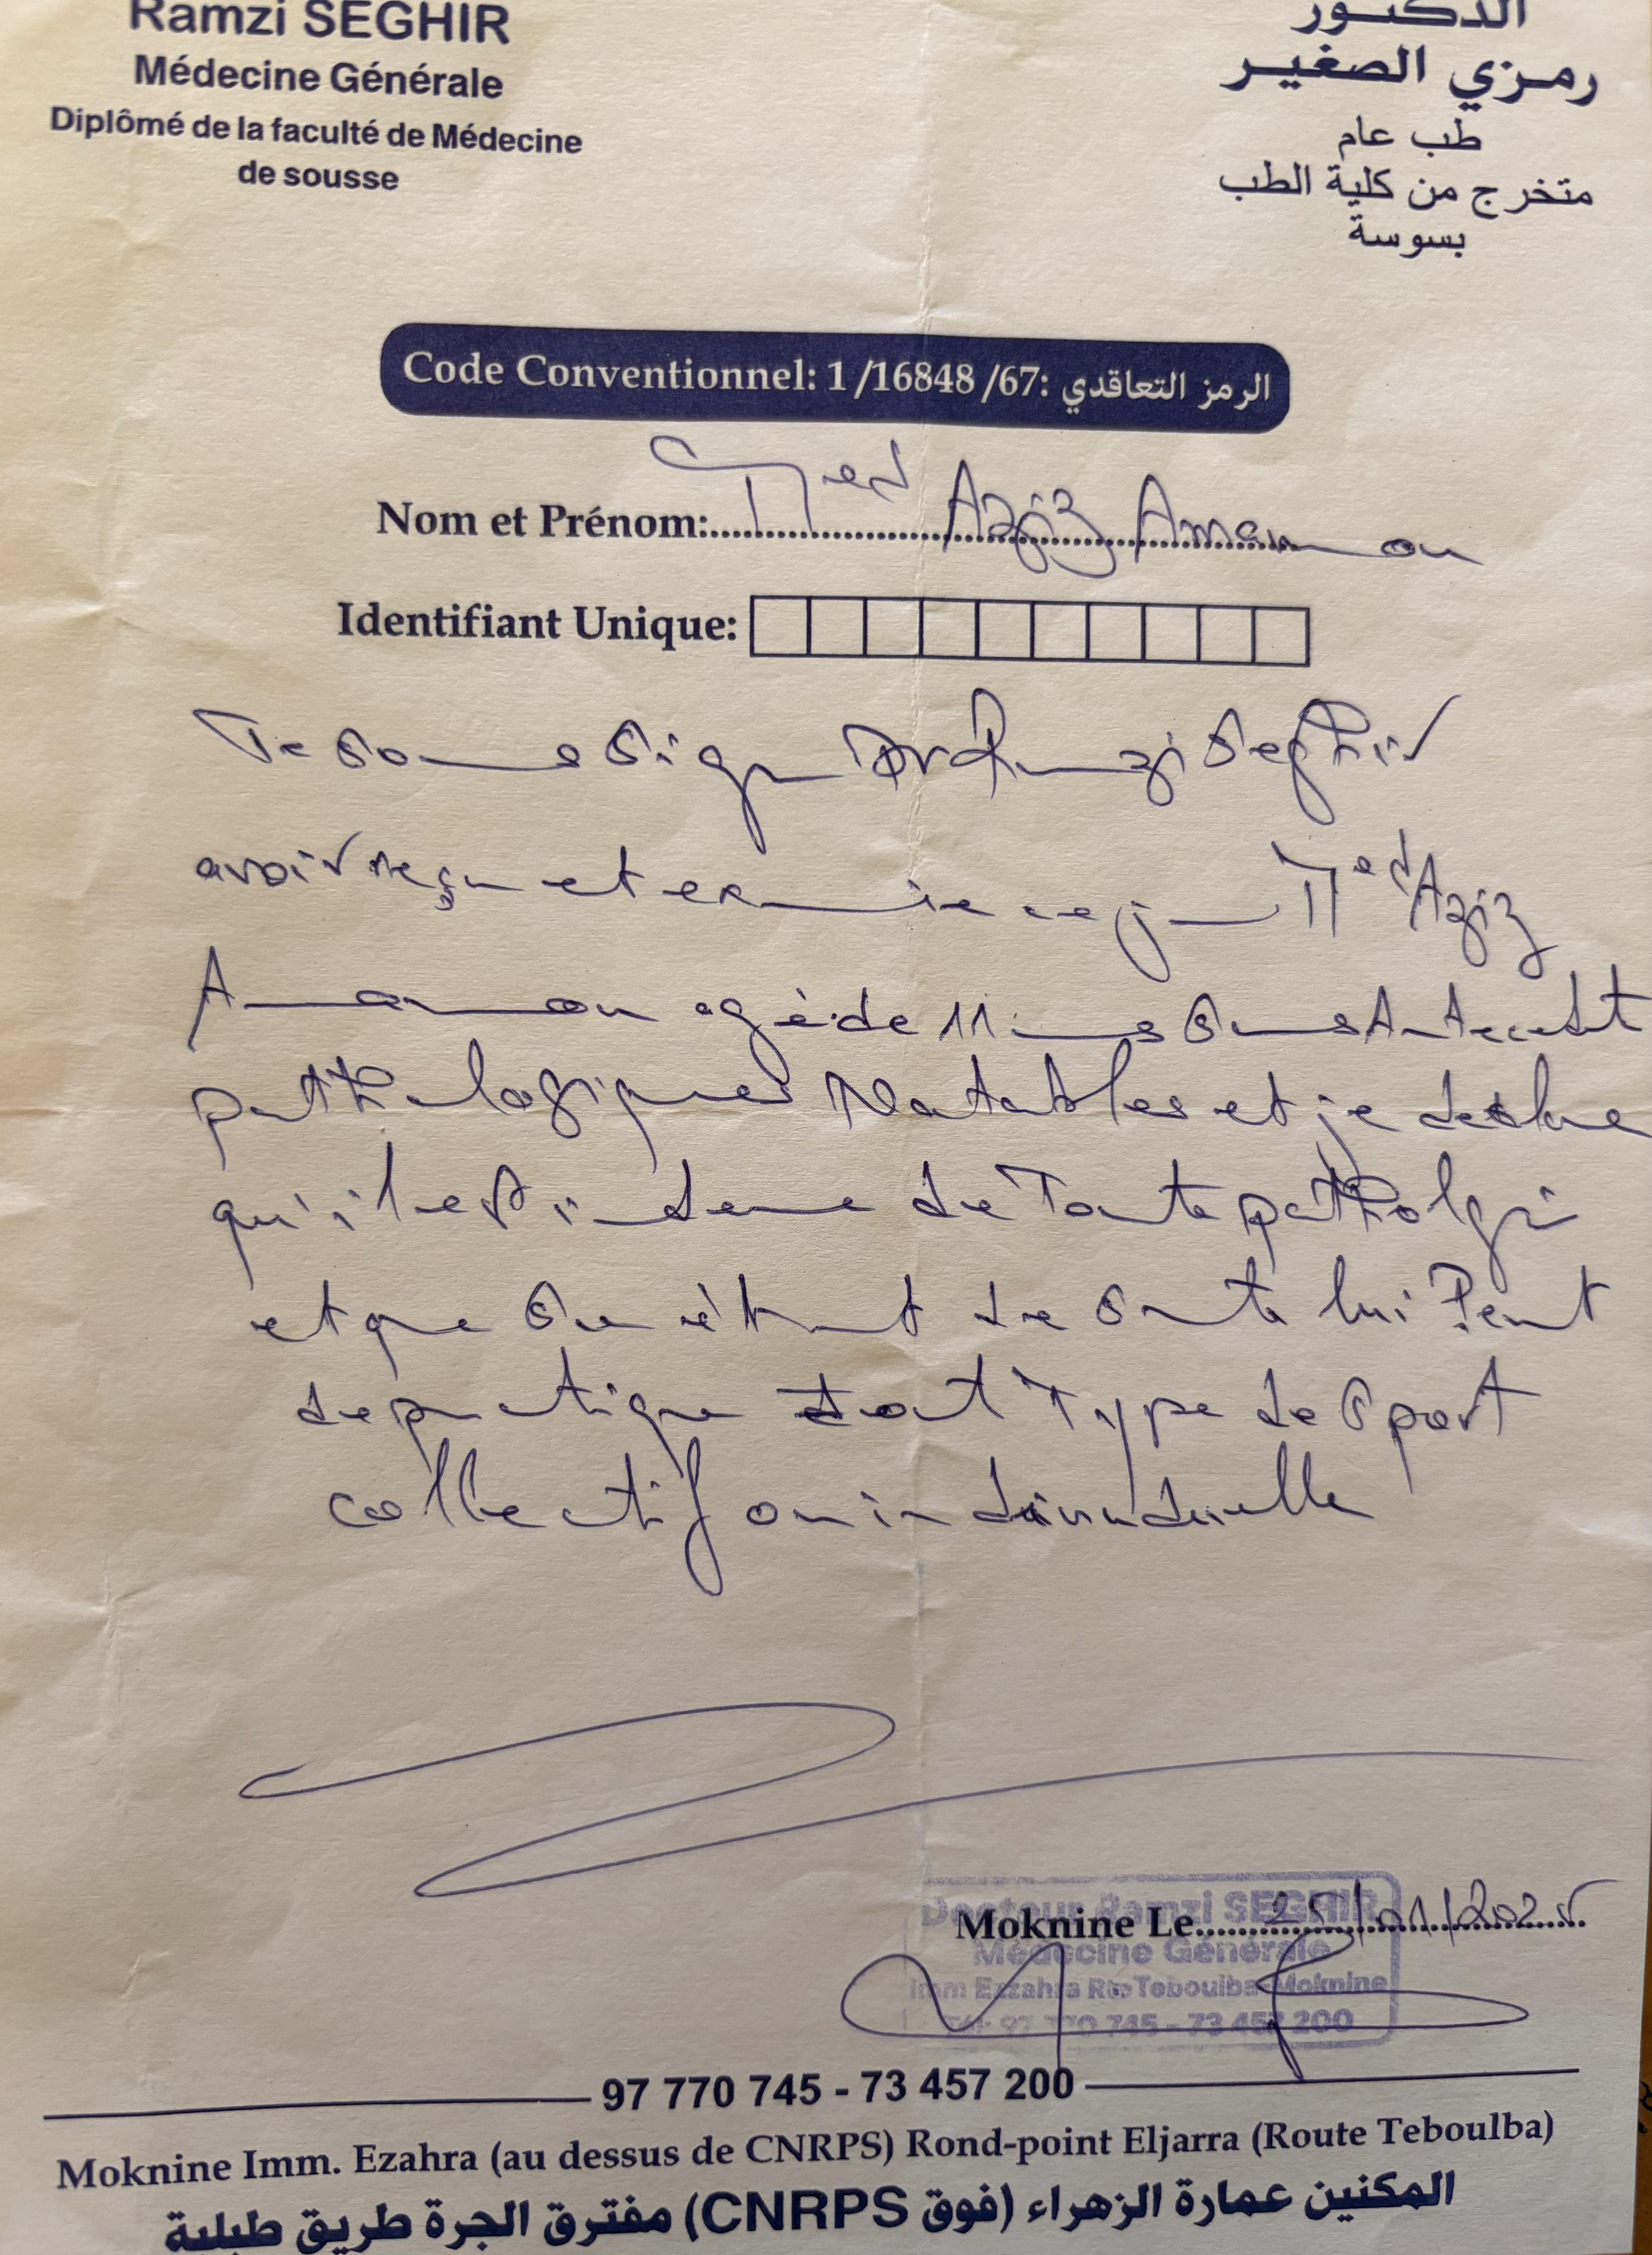 Ramzi SEGHIR
Médecine Générale
Diplômé de la faculté de Médecine
de sousse
الدكتور
رمزي الصغير
طب عام
متخرج من كلية الطب
بسوسة
Code Conventionnel: 1 /16848 /67: الرمز التعاقدي
Nom et Prénom: Med Aziz
Identifiant Unique:
Je sousigne Dr Ramzi Seghir
avoir reçu et examine ce jour Med Aziz
agé de 11 ans sans Antecedent
pathologiques Notables et je declare
qu'il est indeme de Toute pathologi
et que son état de sante lui Permet
de pratique tout Type de Sport
collectif ou individuelle
Docteur Ramzi SEGHIR
Moknine Le 25/01/2025
Médecine Générale
Imm Ezzahra Rte Teboulba Moknine
Tél: 97 770 745 - 73 457 200
97 770 745 - 73 457 200
Moknine Imm. Ezahra (au dessus de CNRPS) Rond-point Eljarra (Route Teboulba)
المكنين عمارة الزهراء (فوق CNRPS) مفترق الجرة طريق طبلبة